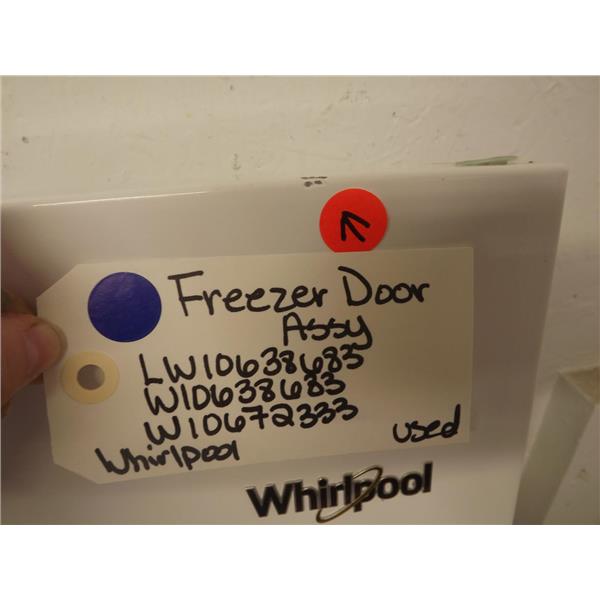 Freezer Door
Assy
LW10638683
W10638683
W10672333
Whirlpool
used
Whirlpool